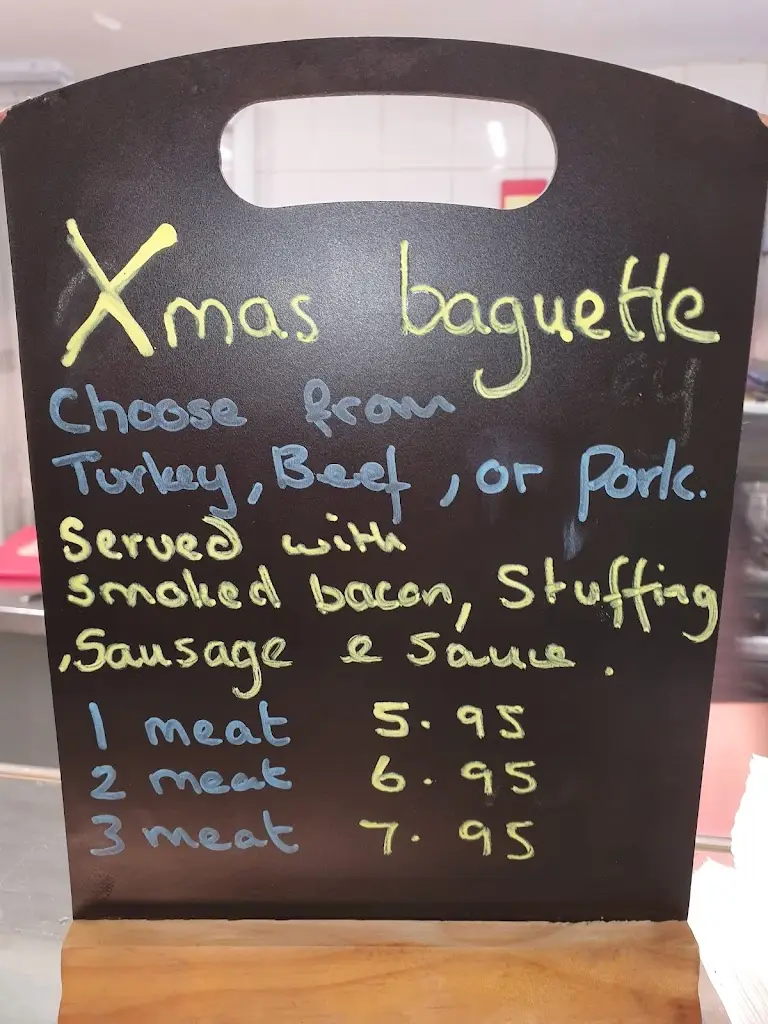 Xmas baguette
Choose from
Turkey, Beef, or Pork.
Served with
smoked bacon, Stuffing
, Sausage e sauce.
1 meat 5.95
2 meat 6.95
3 meat 7.95